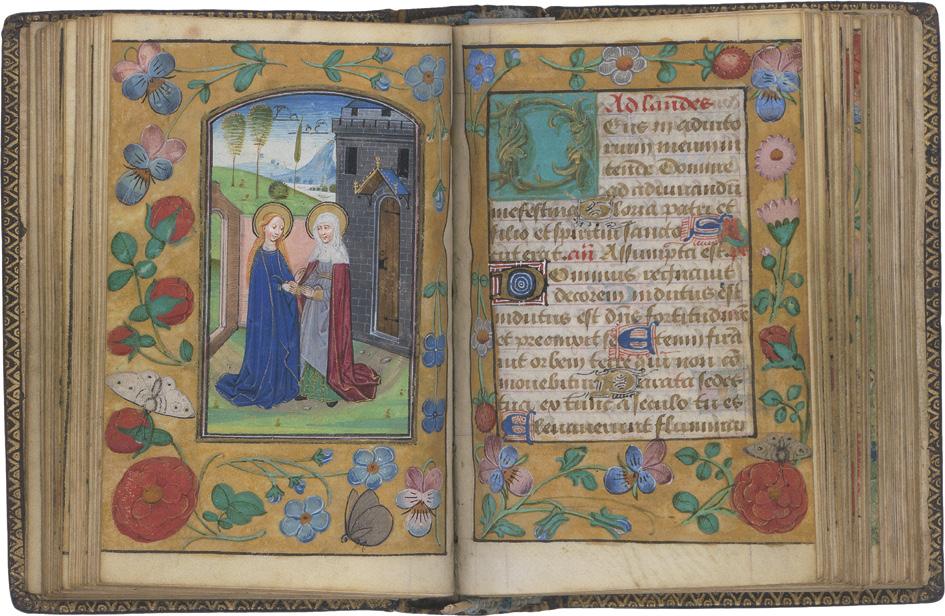 Ad laudes
Deus in adiuto
rium meum in
tende Domine
ad adiuuandū
me festina Gloria patri et
filio et spiritui sancto Si
cut erat añ Assumpta est
Dominus regnauit
decorem indutus est
indutus est dñs fortitudinem
et precinxit se Etenim firā
uit orbem terre qui non cō
mouebitur Parata sedes
tua ex tunc a seculo tu es
Eleuauerunt flumina